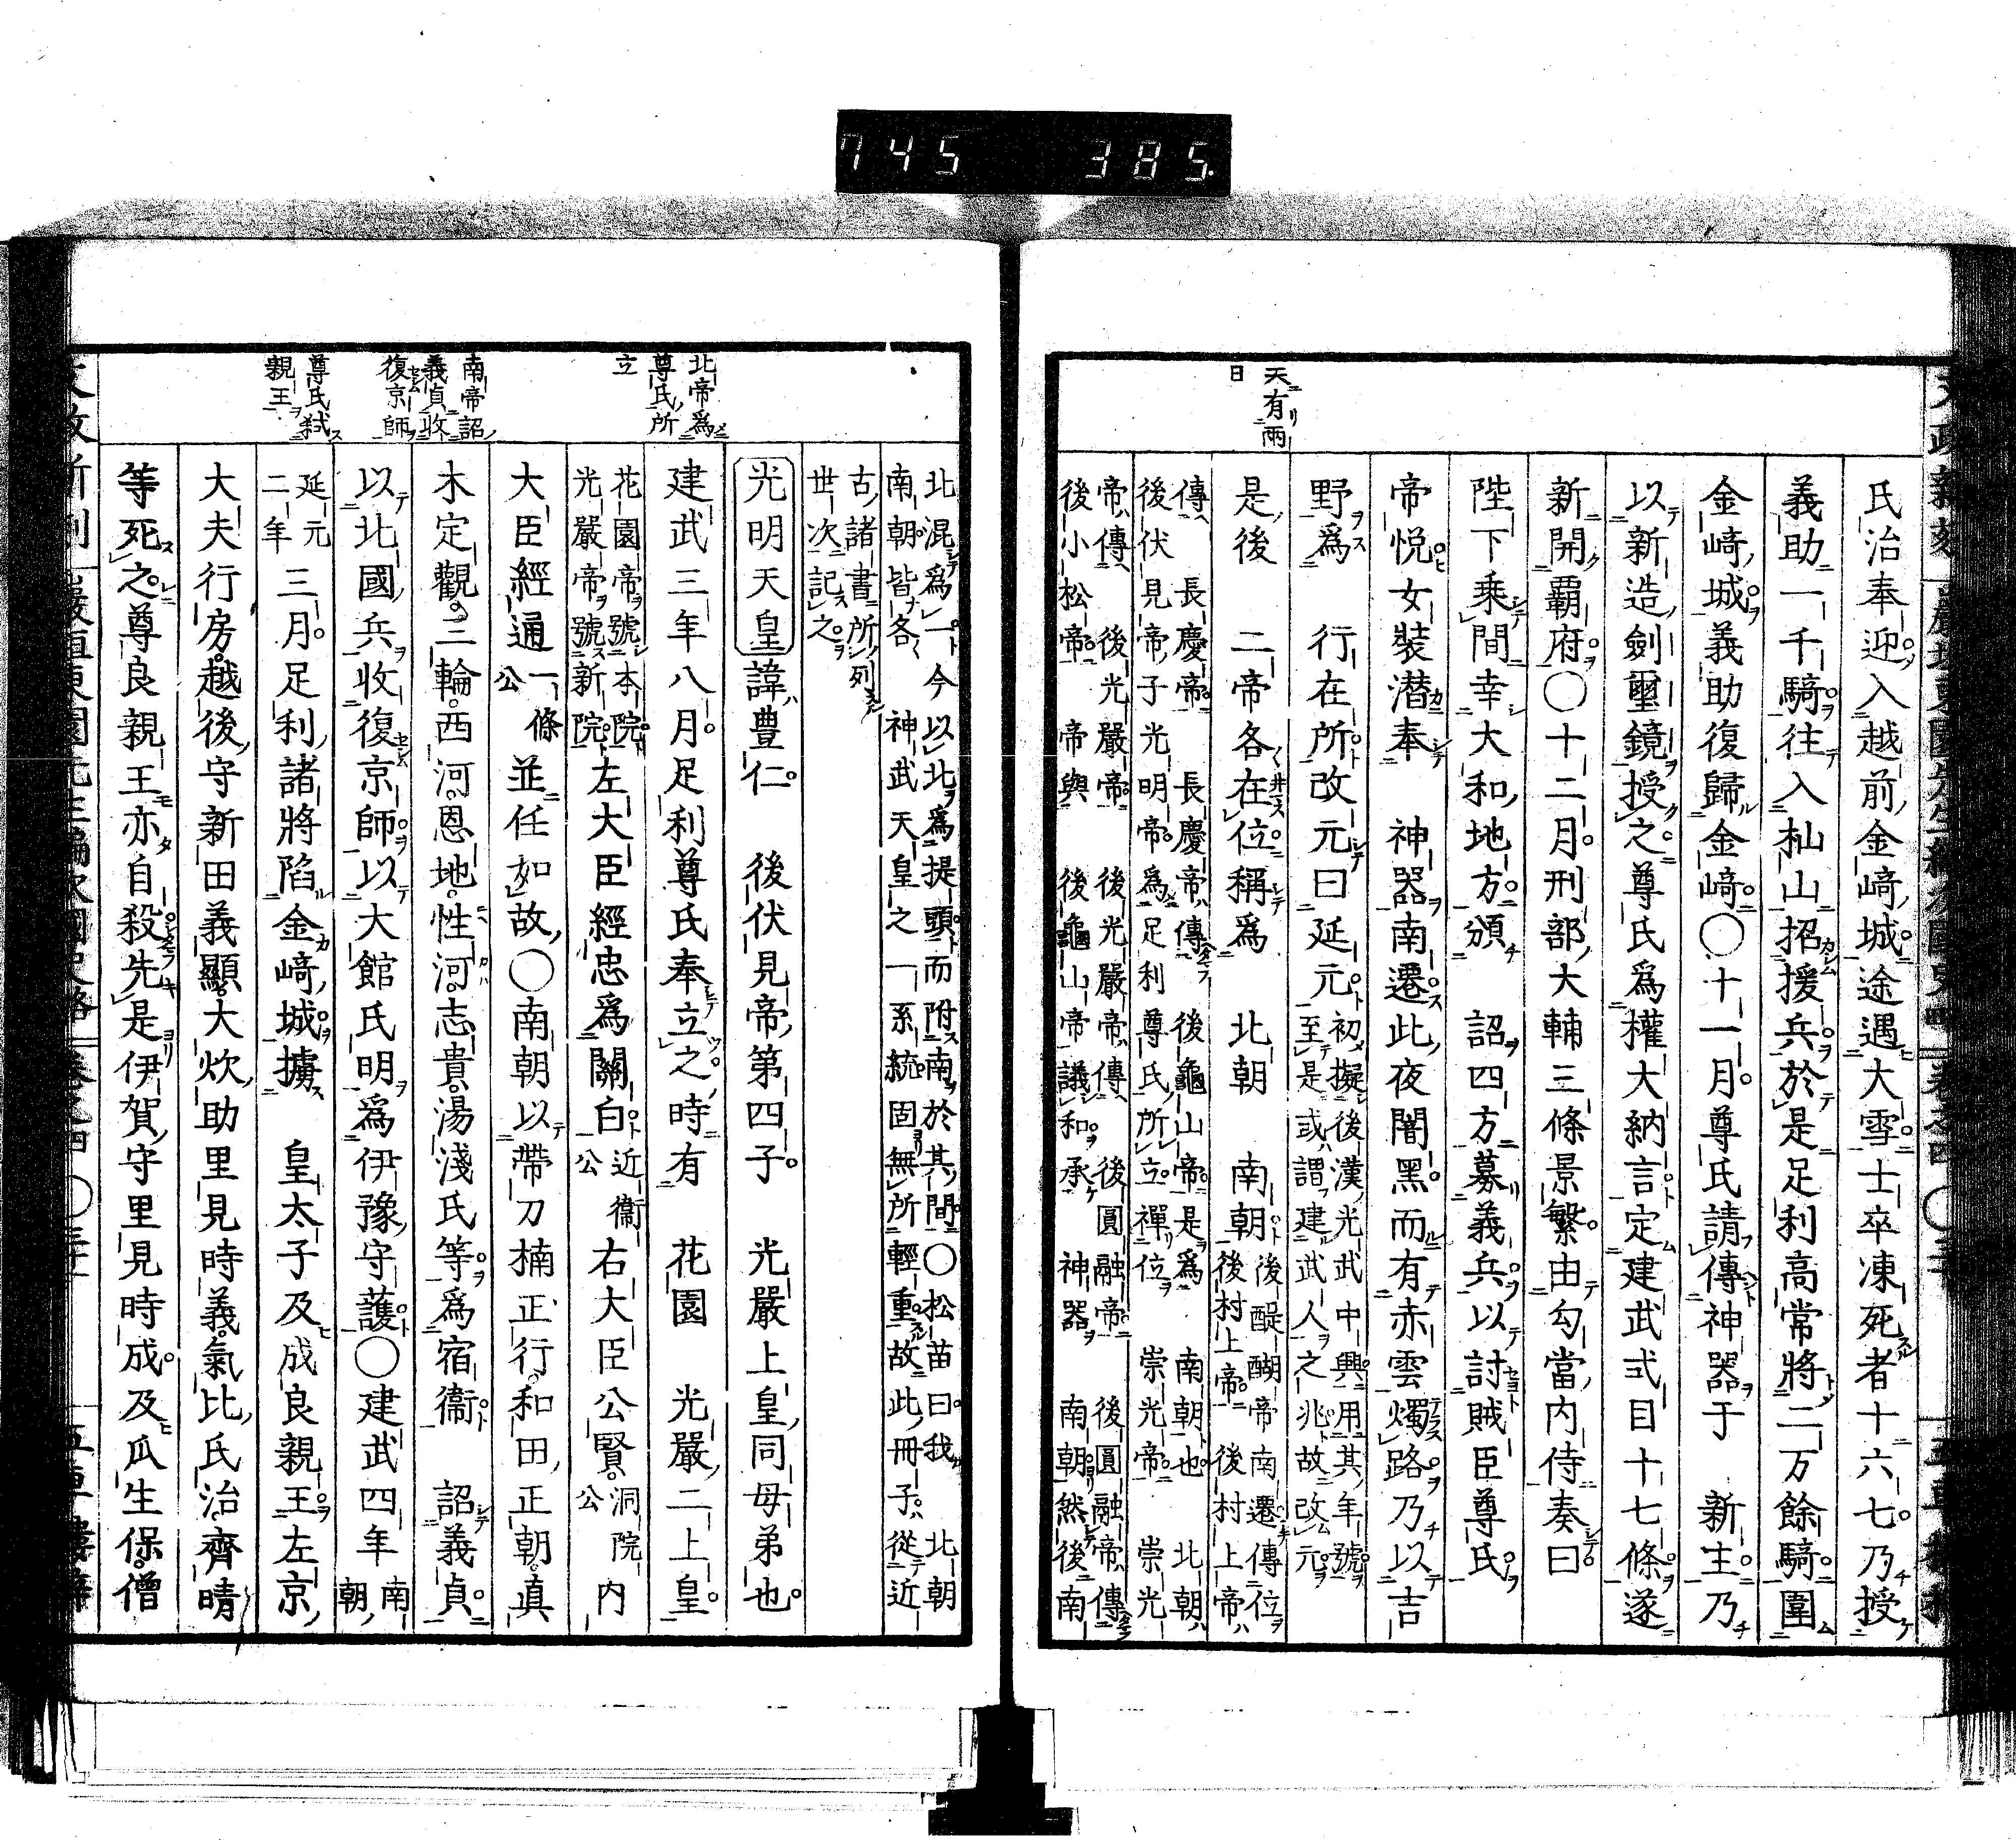 745 385
天有兩
日
氏治奉迎入越前金﨑城途遇大雪士卒凍死者十六七乃授
義助一千騎往入杣山招援兵於是足利高常將二万餘騎圍
金﨑城義助復歸金﨑〇十一月尊氏請傳神器于 新主乃
以新造劍璽鏡授之尊氏爲權大納言定建武式目十七條遂
新開覇府〇十二月刑部大輔三條景繁由勾當内侍奏曰
陛下乘間幸大和地方頒 詔四方募義兵以討賊臣尊氏
帝悦女装潜奉 神器南遷此夜闇黑而有赤雲燭路乃以吉
野爲 行在所改元曰延元初擬後漢光武中興用其年號
至是或謂建武武人之兆故改元
是後 二帝各在位稱爲 北朝 南朝後醍醐帝南遷傳位
後村上帝 後村上帝
傳 長慶帝 長慶帝傳 後龜山帝是爲 南朝也 北朝
後伏見帝子光明帝爲足利尊氏所立禪位 崇光帝 崇光
帝傳 後光嚴帝 後光嚴帝傳 後圓融帝 後圓融帝傳
後小松帝 帝與 後龜山帝議和承 神器 南朝然後南
北帝爲
尊氏所
立
南帝詔
義貞收
復京師
尊氏弑
親王
北混爲一今以北爲提頭而附南於其間〇松苗曰我 北朝
南朝皆各 神武天皇之一系統固無所輕重故此冊子從近
古諸書所列
世次記之
光明天皇諱豊仁 後伏見帝第四子 光嚴上皇同母弟也
建武三年八月足利尊氏奉立之時有 花園 光嚴二上皇
花園帝號本院
光嚴帝號新院左大臣經忠爲關白近衞
公右大臣公賢洞院
公内
大臣經通一條
公並任如故〇南朝以帶刀楠正行和田正朝眞
木定觀三輪西河恩地性河志貴湯淺氏等爲宿衞 詔義貞
以北國兵收復京師以大館氏明爲伊豫守護〇建武四年南
朝
延元
二年三月足利諸將陷金﨑城擄 皇太子及成良親王左京
大夫行房越後守新田義顯大炊助里見時義氣比氏治齊晴
等死之尊良親王亦自殺先是伊賀守里見時成及瓜生保僧